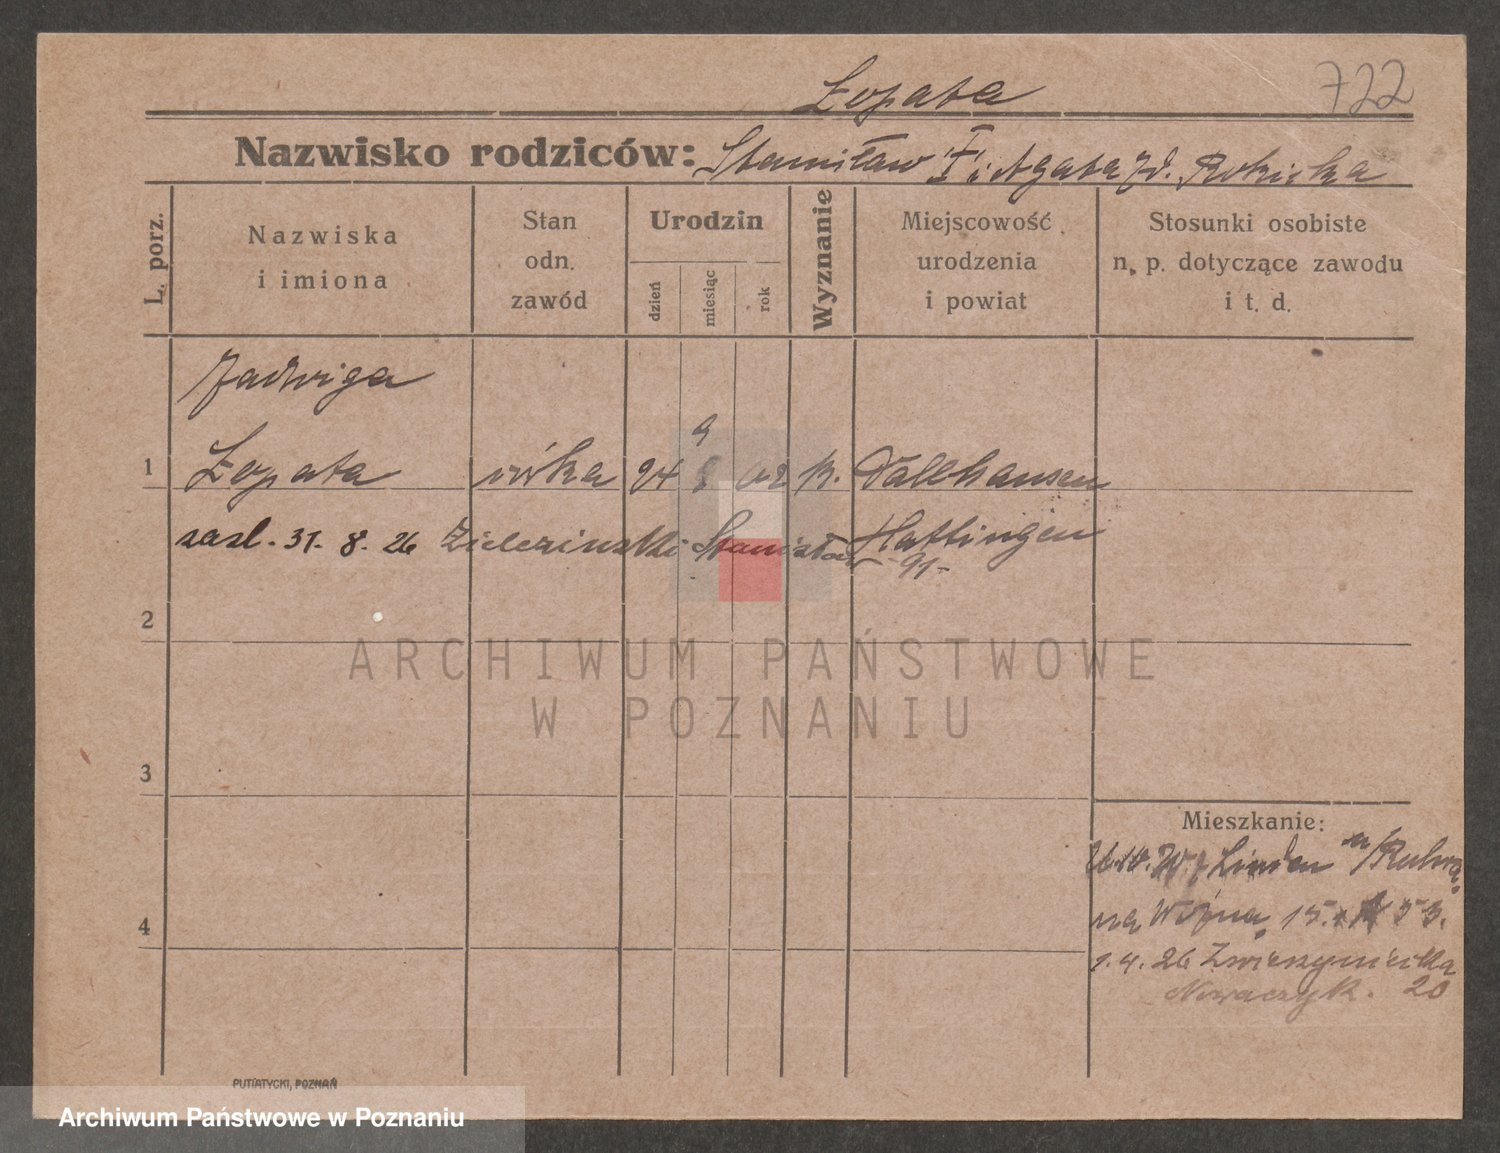 722
Łopata
Nazwisko rodziców: Stanisław i Agata zd. Rokicka
L. porz.
Nazwiska i imiona
Stan odn. zawód
Urodzin
dzień
miesiąc
rok
Wyznanie
Miejscowość urodzenia i powiat
Stosunki osobiste n. p. dotyczące zawodu i t. d.
Jadwiga
9
1 Łopata córka 24 8 02 k. Dallhausen
zasl. 31. 8. 26 Zieleziński Stanisław Hattingen
91-
2
3
4
Mieszkanie:
Linden n/Ruhrą
na Wojna 15.
1. 4. 26 Zwierzyniecka
Nowaczyk. 20
PUTIATYCKI, POZNAŃ
ARCHIWUM PAŃSTWOWE
W POZNANIU
Archiwum Państwowe w Poznaniu